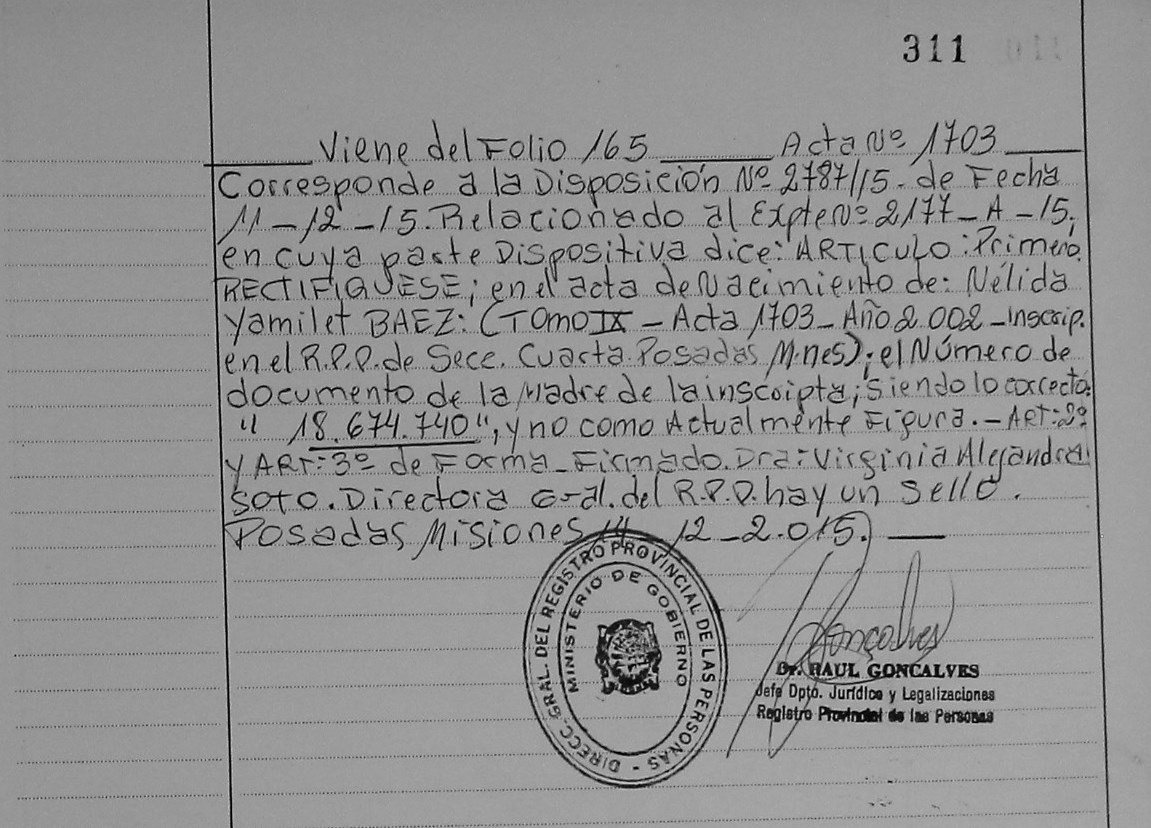 311
Viene del Folio 165 Acta Nº 1703
Corresponde a la Disposición Nº 2787/15.- de Fecha
11-12-15. Relacionado al Expte Nº 2177-A-15,
en cuya parte Dispositiva dice: ARTICULO: Primero.
RECTIFIQUESE; en el acta de Nacimiento de: Nélida
Yamilet BAEZ: (TOMO IX - Acta 1703 - Año 2.002 - Inscrip.
en el R.P.P. de Secc. Cuarta Posadas Mnes); el Número de
documento de la Madre de la inscripta; Siendo lo correcto:
" 18.674.740", y no como Actualmente Figura. - ART: 2º
y ART: 3º de Forma - Firmado. Dra: Virginia Alejandra
Soto. Directora Gral. del R.P.P. hay un sello.
Posadas Misiones 12-2.015.
DIRECC. GRAL. DEL REGISTRO PROVINCIAL DE LAS PERSONAS -
MINISTERIO DE GOBIERNO
Goncalves
Dr. RAUL GONCALVES
Jefe Dpto. Jurídico y Legalizaciones
Registro Provincial de las Personas